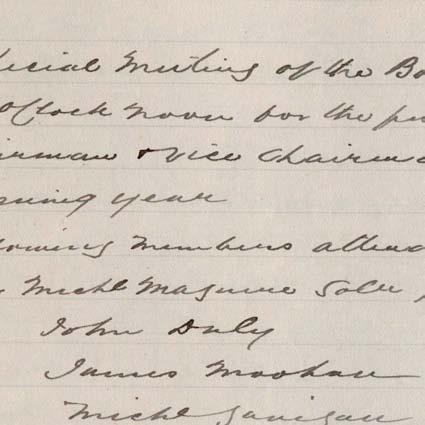 ecial Meeting of the Bo
o'Clock noon for the pu
irman & Vice Chairma
suing year
lowing Members atten
Michl Maguire Solr
John Daly
James Moohan
Michl Gavigan